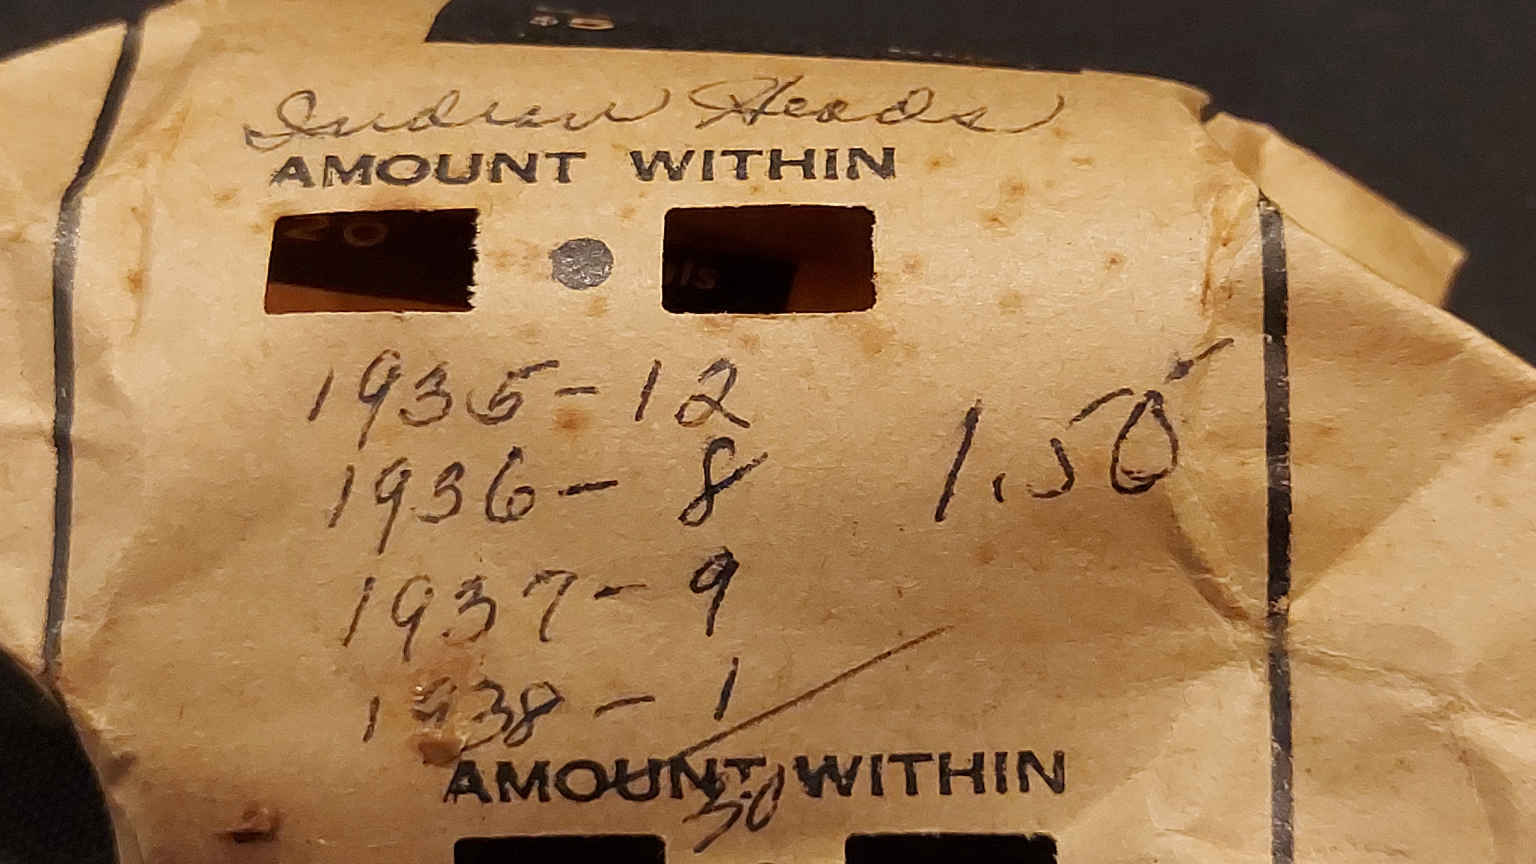 Indian Heads
AMOUNT WITHIN
20
ls
1935-12
1936- 8 1.50
1937- 9
1938- 1
AMOUNT WITHIN
30